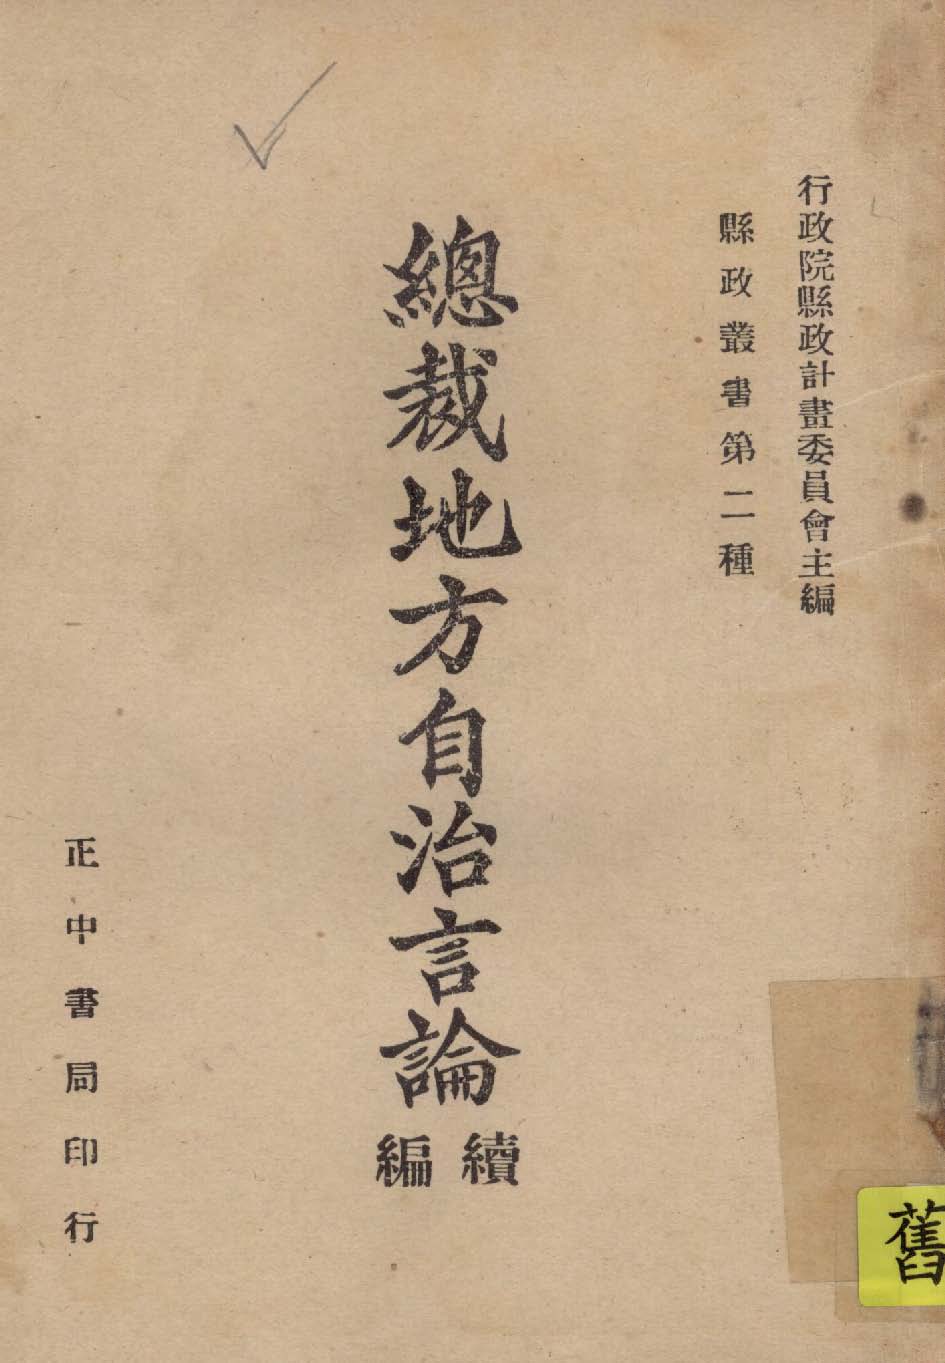 行政院縣政計畫委員會主編
縣政叢書第二種
總裁地方自治言論
續編
正中書局印行
舊